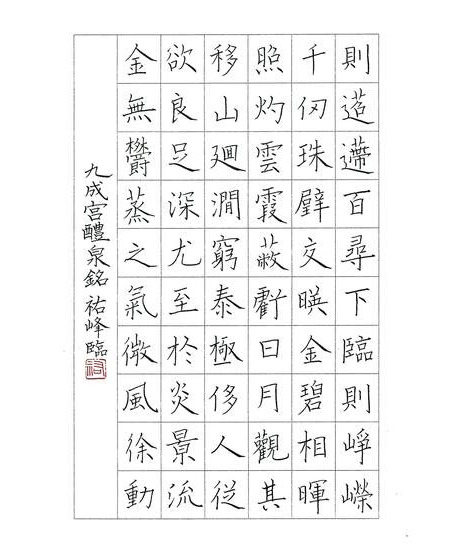 則迢遰百尋下臨則崢嶸
千仞珠壁交暎金碧相暉
照灼雲霞蔽虧日月觀其
移山廻澗窮泰極侈人從
欲良足深尤至扵炎景流
金無鬱蒸之氣微風徐動
九成宮醴泉銘 祐峰臨